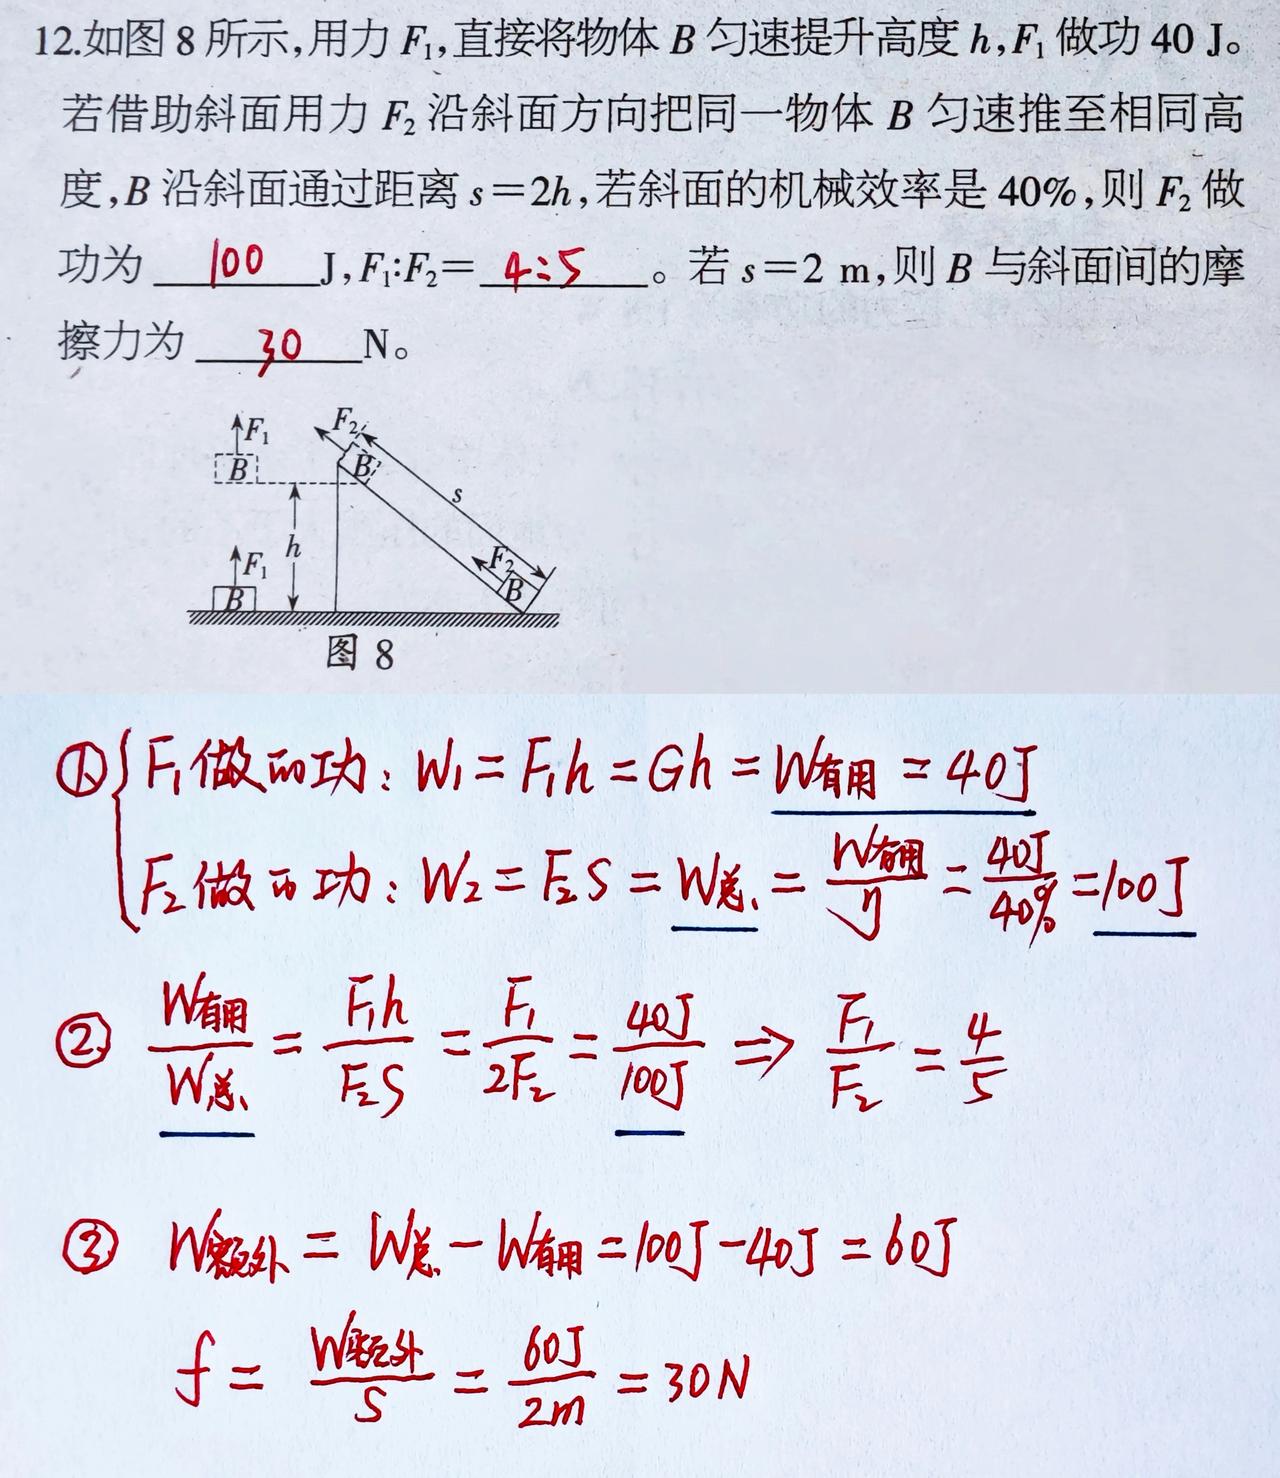 12.如图 8 所示,用力 F₁,直接将物体 B 匀速提升高度 h,F₁ 做功 40 J。
若借助斜面用力 F₂ 沿斜面方向把同一物体 B 匀速推至相同高
度,B 沿斜面通过距离 s=2h,若斜面的机械效率是 40%,则 F₂ 做
功为 100 J,F₁:F₂= 4:5 。若 s=2 m,则 B 与斜面间的摩
擦力为 30 N。
F₁
B
F₂
B
s
h
F₁
B
F₂
B
图 8
① F₁做的功: W₁=F₁h=Gh=W有用=40J
F₂做的功: W₂=F₂S=W总=W有用/η=40J/40%=100J
② W有用/W总=F₁h/F₂S=F₁/2F₂=40J/100J⇒F₁/F₂=4/5
③ W额外=W总-W有用=100J-40J=60J
f=W额外/S=60J/2m=30N